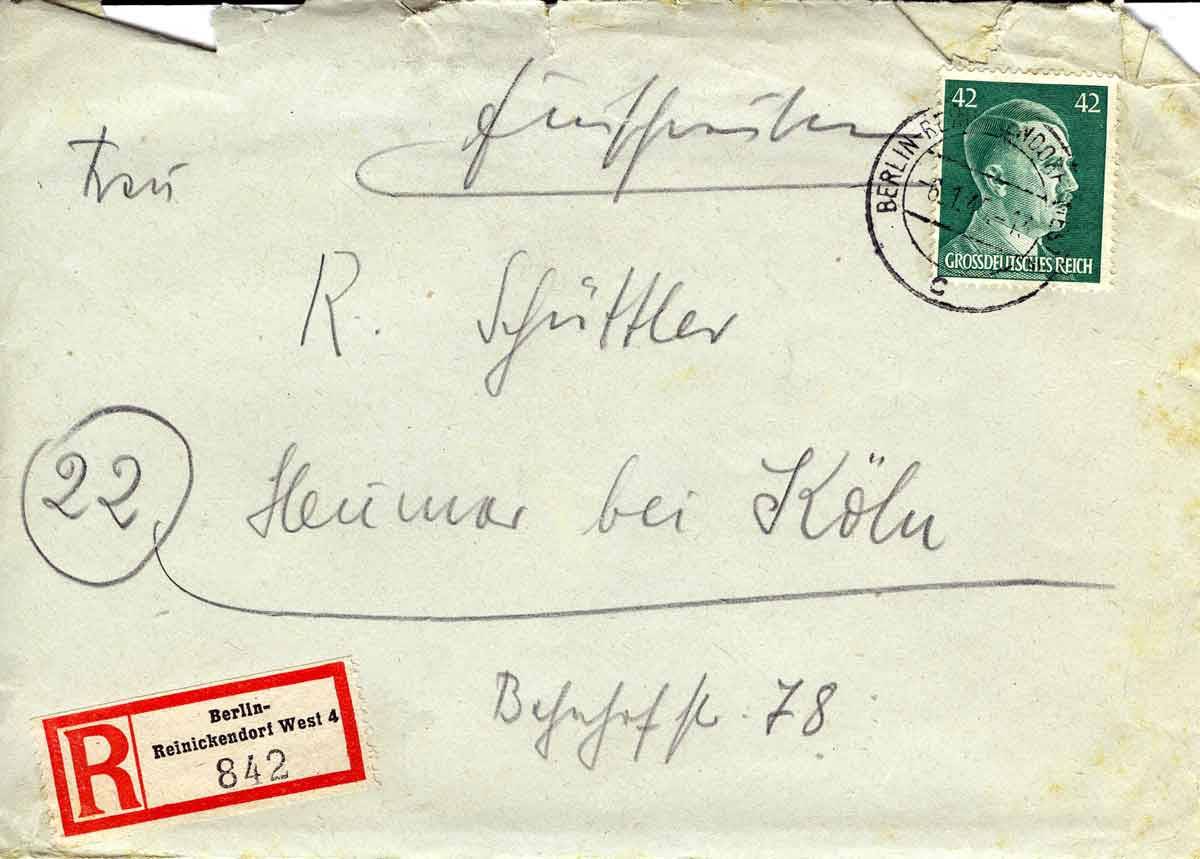 Einschreiben
Frau
42 42
GROSSDEUTSCHES REICH
BERLIN-
C
R. Schüttler
22 Heumar bei Köln
Bahnhofstr. 78
R
Berlin-
Reinickendorf West 4
842